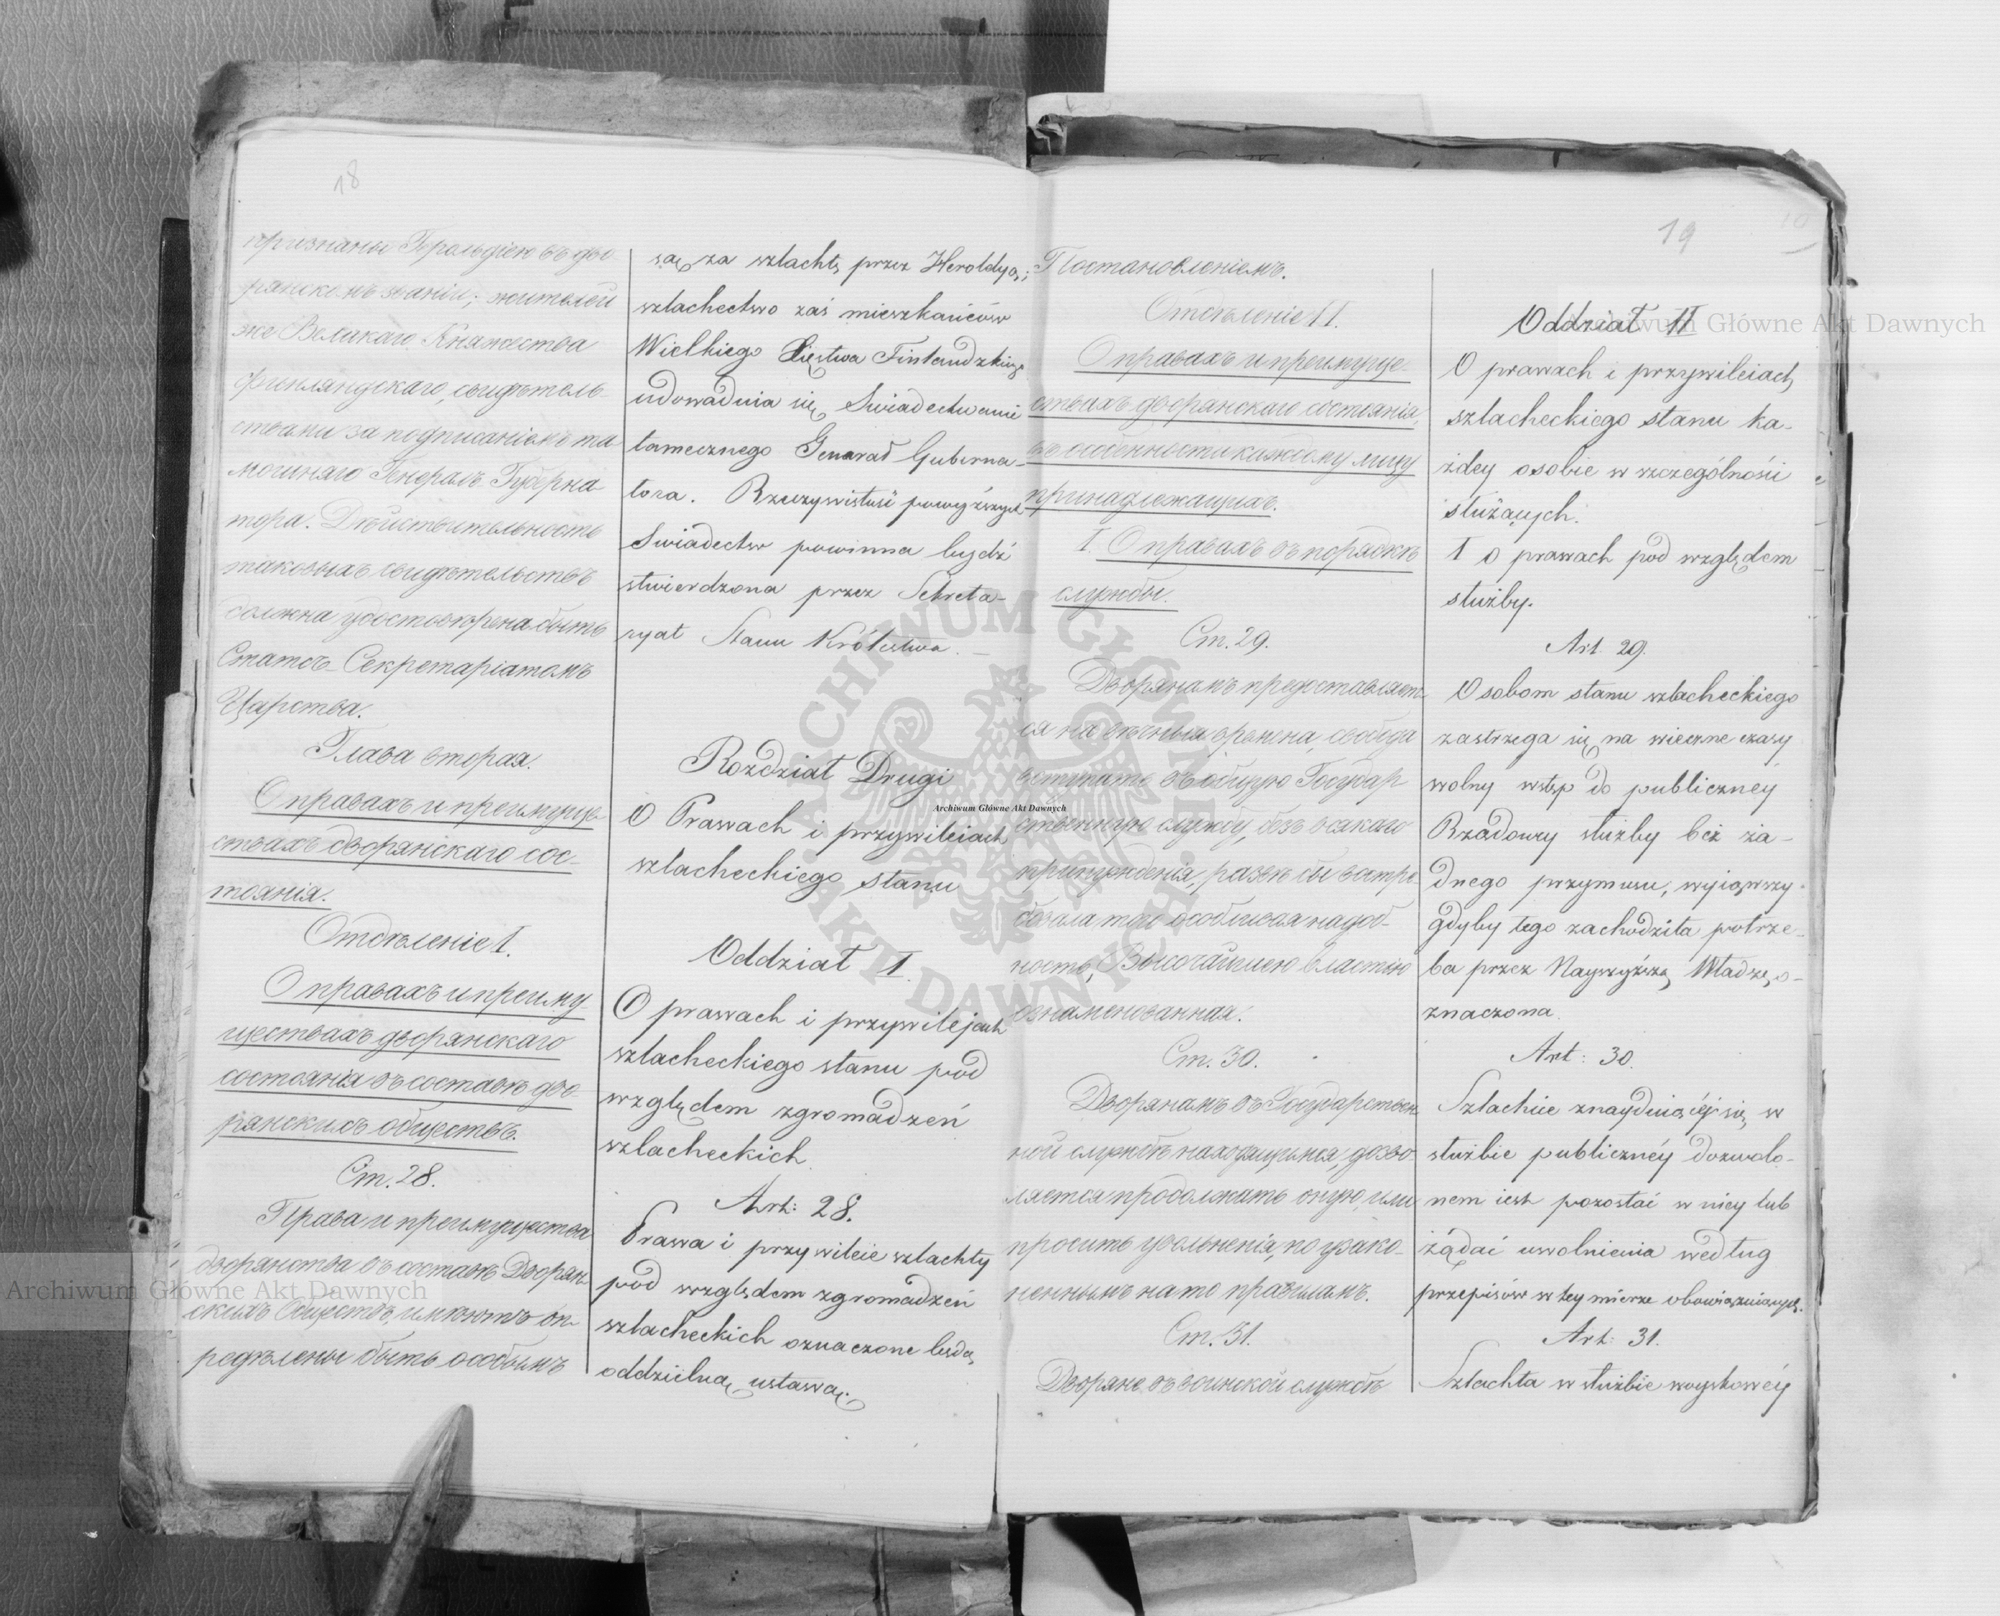 18
признаны Герольдіею въ дво-
рянскомъ званіи; жителей
же Великаго Княжества
Финляндскаго, свидѣтель-
ствами за подписаніемъ та
мошняго Генералъ-Губерна
тора. Дѣйствительность
таковыхъ свидѣтельствъ
должна удостовѣрена быть
Статсъ-Секретаріатомъ
Царства.
Глава вторая.
О правахъ и преимуще-
ствахъ дворянскаго сос-
тоянія.
Отдѣленіе I.
О правахъ и преиму
ществахъ дворянскаго
состоянія въ составѣ дво-
рянскихъ обществъ.
Ст. 28.
Права и преимущества
дворянства въ составѣ Дворян-
скихъ Обществъ, имѣютъ оп-
редѣлены быть особымъ
są za szlachtę przez Heroldyą;
szlachectwo zaś mieszkańców
Wielkiego Xięstwa Finlandzkiego
udowadnia się Swiadectwami
tamecznego Generał Guberna-
tora. Rzeczywistość powyższych
Swiadectw powinna bydź
stwierdzona przez Sekreta-
ryat Stanu Królestwa.
Rozdział Drugi
O Prawach i przywilejach
szlacheckiego stanu
Oddział I.
O prawach i przywilejach
szlacheckiego stanu pod
względem zgromadzeń
szlacheckich
Art: 28.
Prawa i przywileie szlachty
pod względem zgromadzeń
szlacheckich oznaczone będą
oddzielną ustawą.
19
Постановленіемъ.
Отдѣленіе II.
О правахъ и преимуще-
ствахъ дворянскаго состоянія,
въ особенности каждому лицу
принадлежащихъ.
I. О правахъ въ порядкѣ
службы.
Ст. 29.
Дворянамъ предоставляет-
ся на вѣчныя времена, свобода
вступать въ общую Государ
ственную службу, безъ всякаго
принужденія, развѣ бы востре-
бовала того особливая надоб-
ность, Высочайшею властію
ознаменованная.
Ст. 30.
Дворянамъ въ Государствен-
ной службѣ находящимся, дозво-
ляется продолжать оную, или
просить увольненія, по узако-
неннымъ на то правиламъ.
Ст. 31.
Дворяне въ воинской службѣ
Oddział II
O prawach i przywileiach
szlacheckiego stanu ka-
żdey osobie w szczególności
służących.
I o prawach pod względem
służby.
Art. 29.
Osobom stanu szlacheckiego
zastrzega się na wieczne czasy
wolny wstęp do publiczney
Rządowey służby bez ża-
dnego przymusu, wyiąwszy
gdyby tego zachodziła potrze-
ba przez Naywyższą Władzę o-
znaczona.
Art: 30.
Szlachcie znayduiącéy się w
służbie publicznéy dozwolo-
nem iest pozostać w niey lub
żądać uwolnienia według
przepisów w tey mierze obowiązuiących.
Art: 31.
Szlachta w służbie woyskowéy
Archiwum Główne Akt Dawnych
Archiwum Główne Akt Dawnych
Archiwum Główne Akt Dawnych
ARCHIWUM GŁÓWNE AKT DAWNYCH